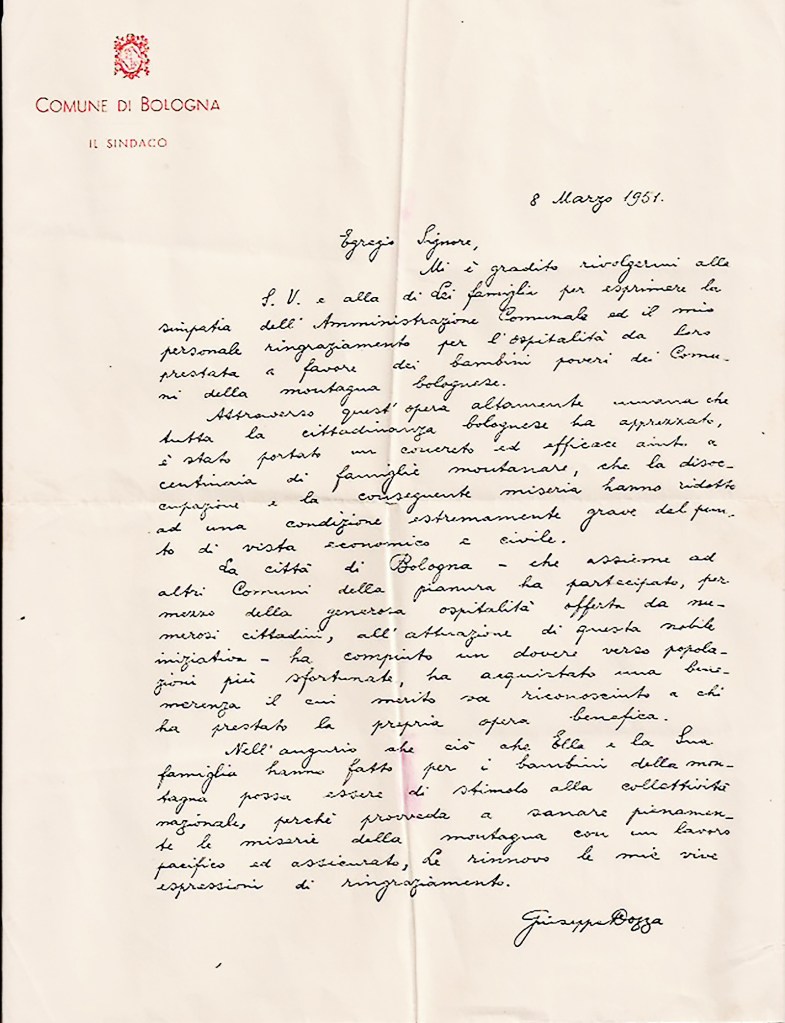 COMUNE DI BOLOGNA
IL SINDACO
8 Marzo 1951.
Egregio Signore,
Mi è gradito rivolgermi alla
S. V. e alla di Lei famiglia per esprimere la
simpatia dell'Amministrazione Comunale ed il mio
personale ringraziamento per l'ospitalità da loro
prestata a favore dei bambini poveri dei Comu-
ni della montagna bolognese.
Attraverso quest'opera altamente umana che
tutta la cittadinanza bolognese ha apprezzato,
è stato portato un concreto ed efficace aiuto a
centinaia di famiglie montanare, che la disoc-
cupazione e la conseguente miseria hanno ridotte
ad una condizione estremamente grave dal pun-
to di vista economico e civile.
La città di Bologna - che assieme ad
altri Comuni della pianura ha partecipato, per
mezzo della generosa ospitalità offerta da nu-
merosi cittadini, all'attuazione di questa nobile
iniziativa - ha compiuto un dovere verso popola-
zioni più sfortunate, ha acquistato una bene-
merenza il cui merito va riconosciuto a chi
ha prestato la propria opera benefica.
Nell'augurio che ciò che Ella e la Sua
famiglia hanno fatto per i bambini della mon-
tagna possa essere di stimolo alla collettività
nazionale, perchè provveda a sanare pienamen-
te le miserie della montagna con un lavoro
pacifico ed assicurato, Le rinnovo le mie vive
espressioni di ringraziamento.
Giuseppe Dozza